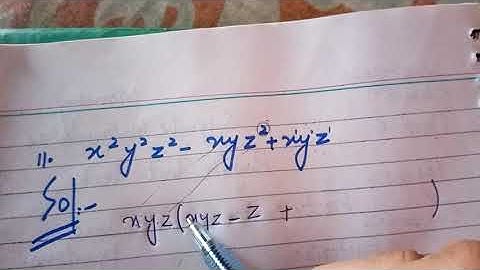 11. x²y²z² - xyz² + x¹y¹z¹
Sol:- xyz(xyz - z + )